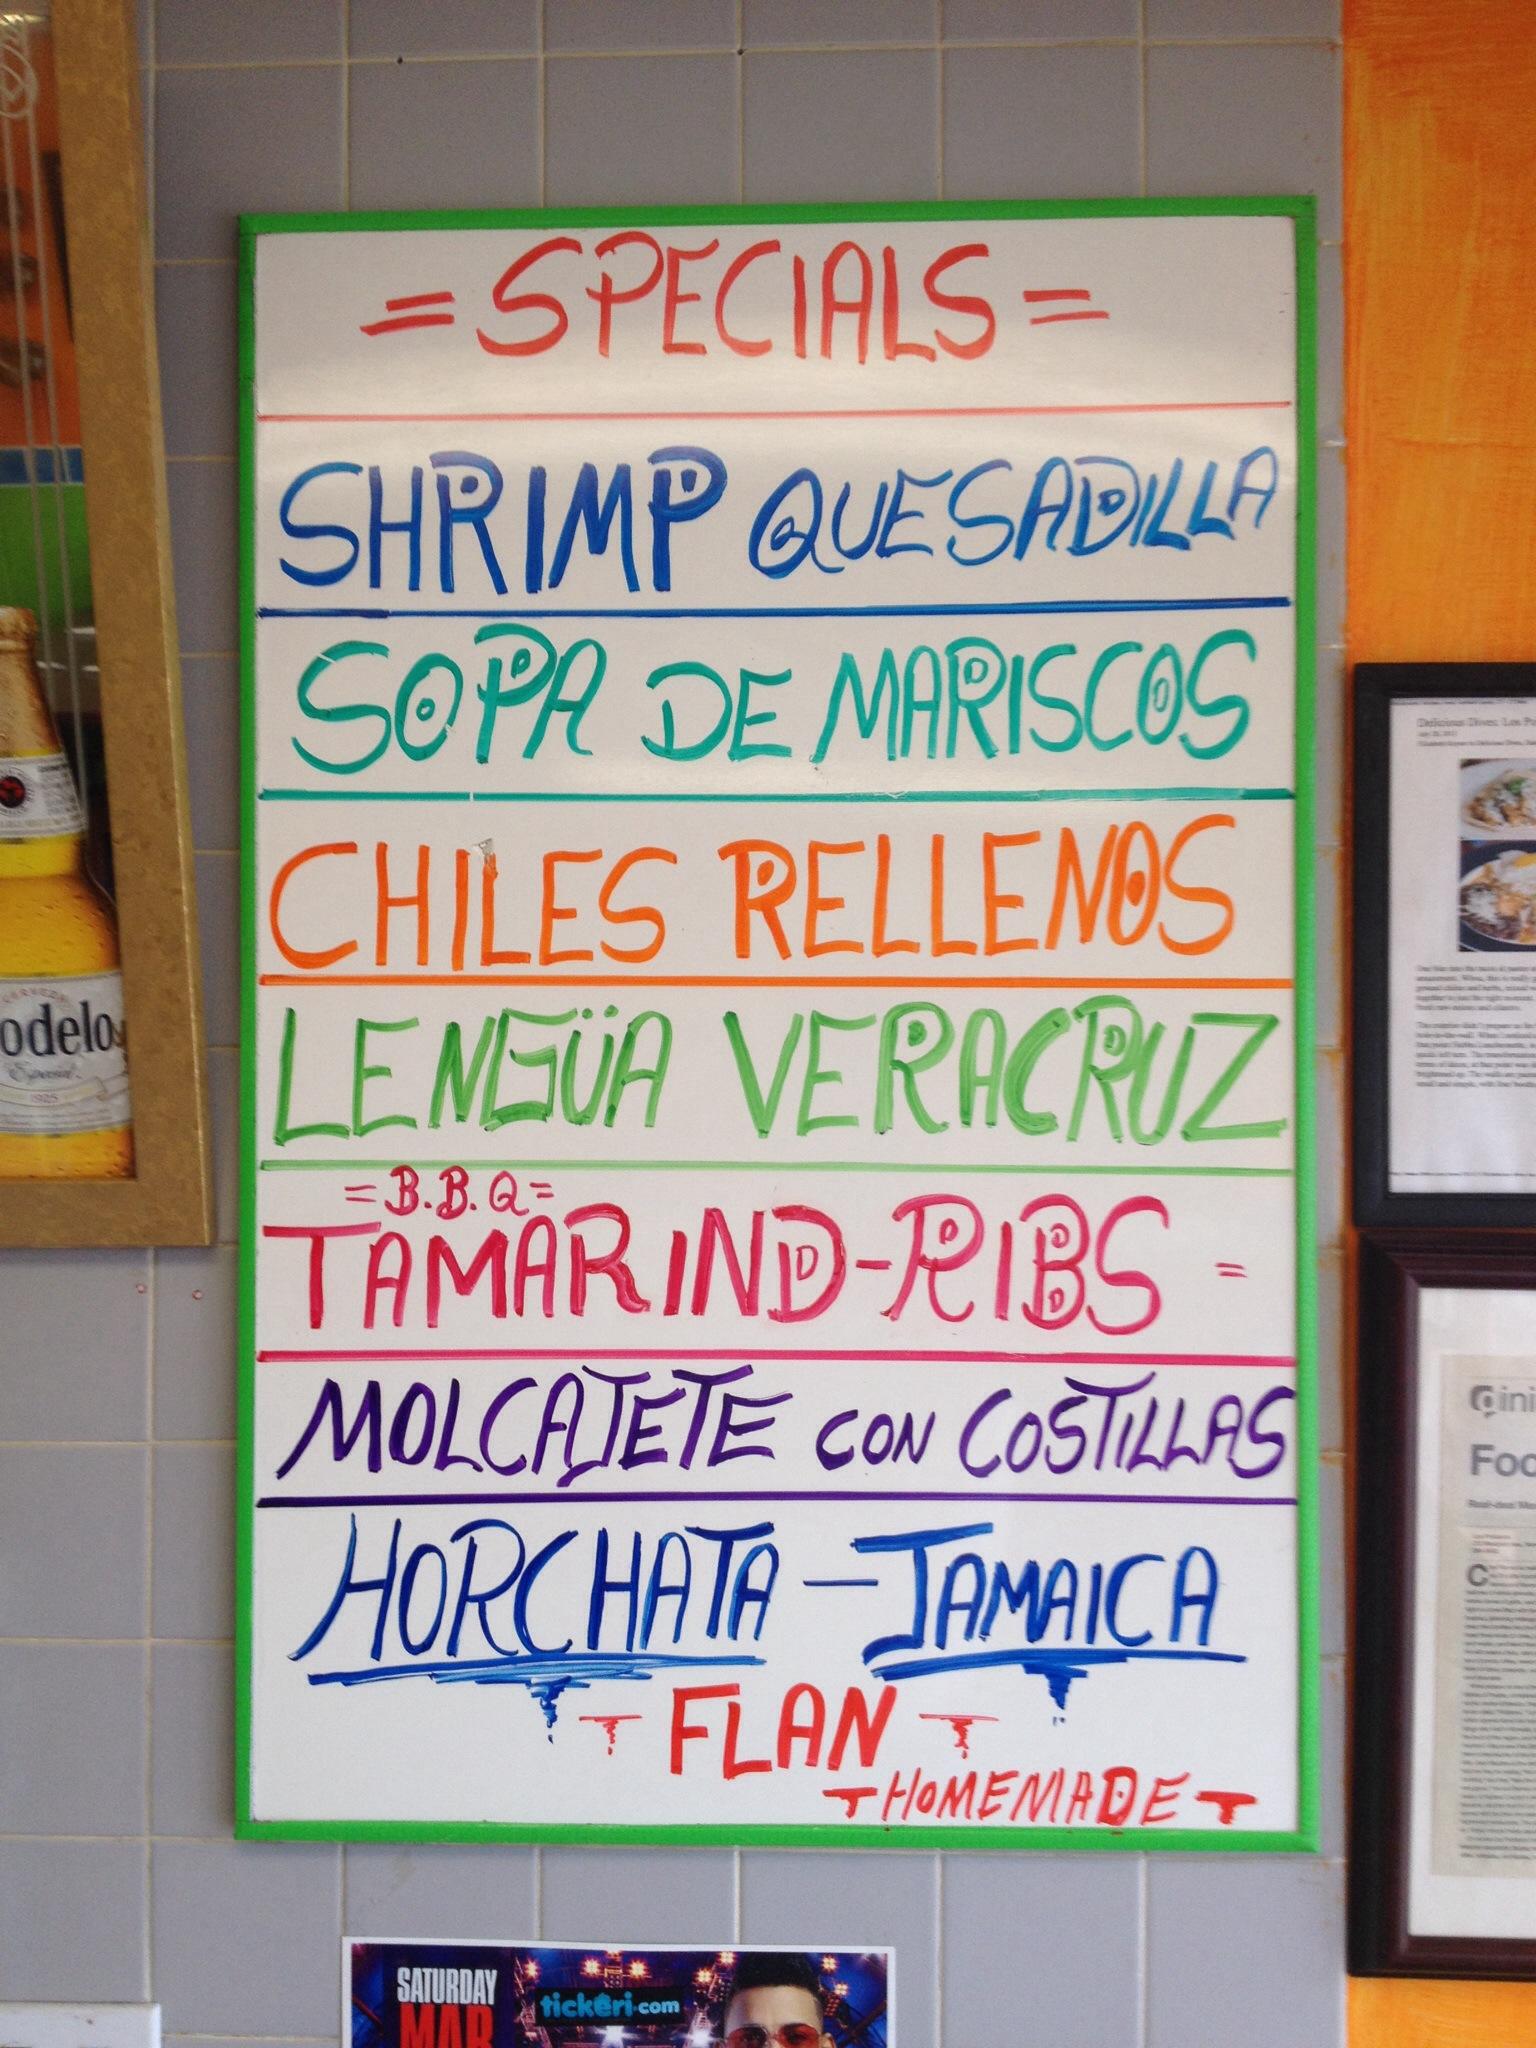 = SPECIALS =
SHRIMP QUESADILLA
SOPA DE MARISCOS
CHILES RELLENOS
LENGÜA VERACRUZ
= B.B.Q =
TAMARIND-RIBS =
MOLCAJETE CON COSTILLAS
HORCHATA - JAMAICA
FLAN
HOMEMADE
odelo
Especial
1925
Delicious Dives: Los
ini
Foo
SATURDAY
MAR
tickeri.com